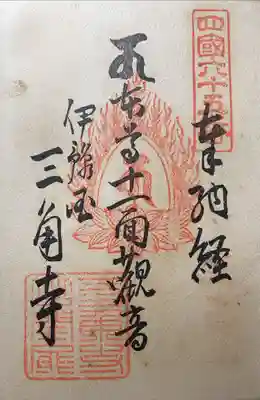 四國六十五番
奉納経
本尊十一面觀音
伊豫国
三角寺